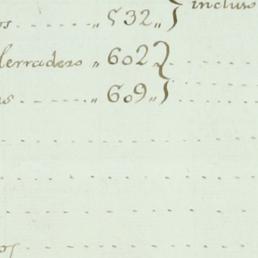 os ...... „ 532 „ } incluso
Herradero „ 602
as ....... „ 609 „ }
os